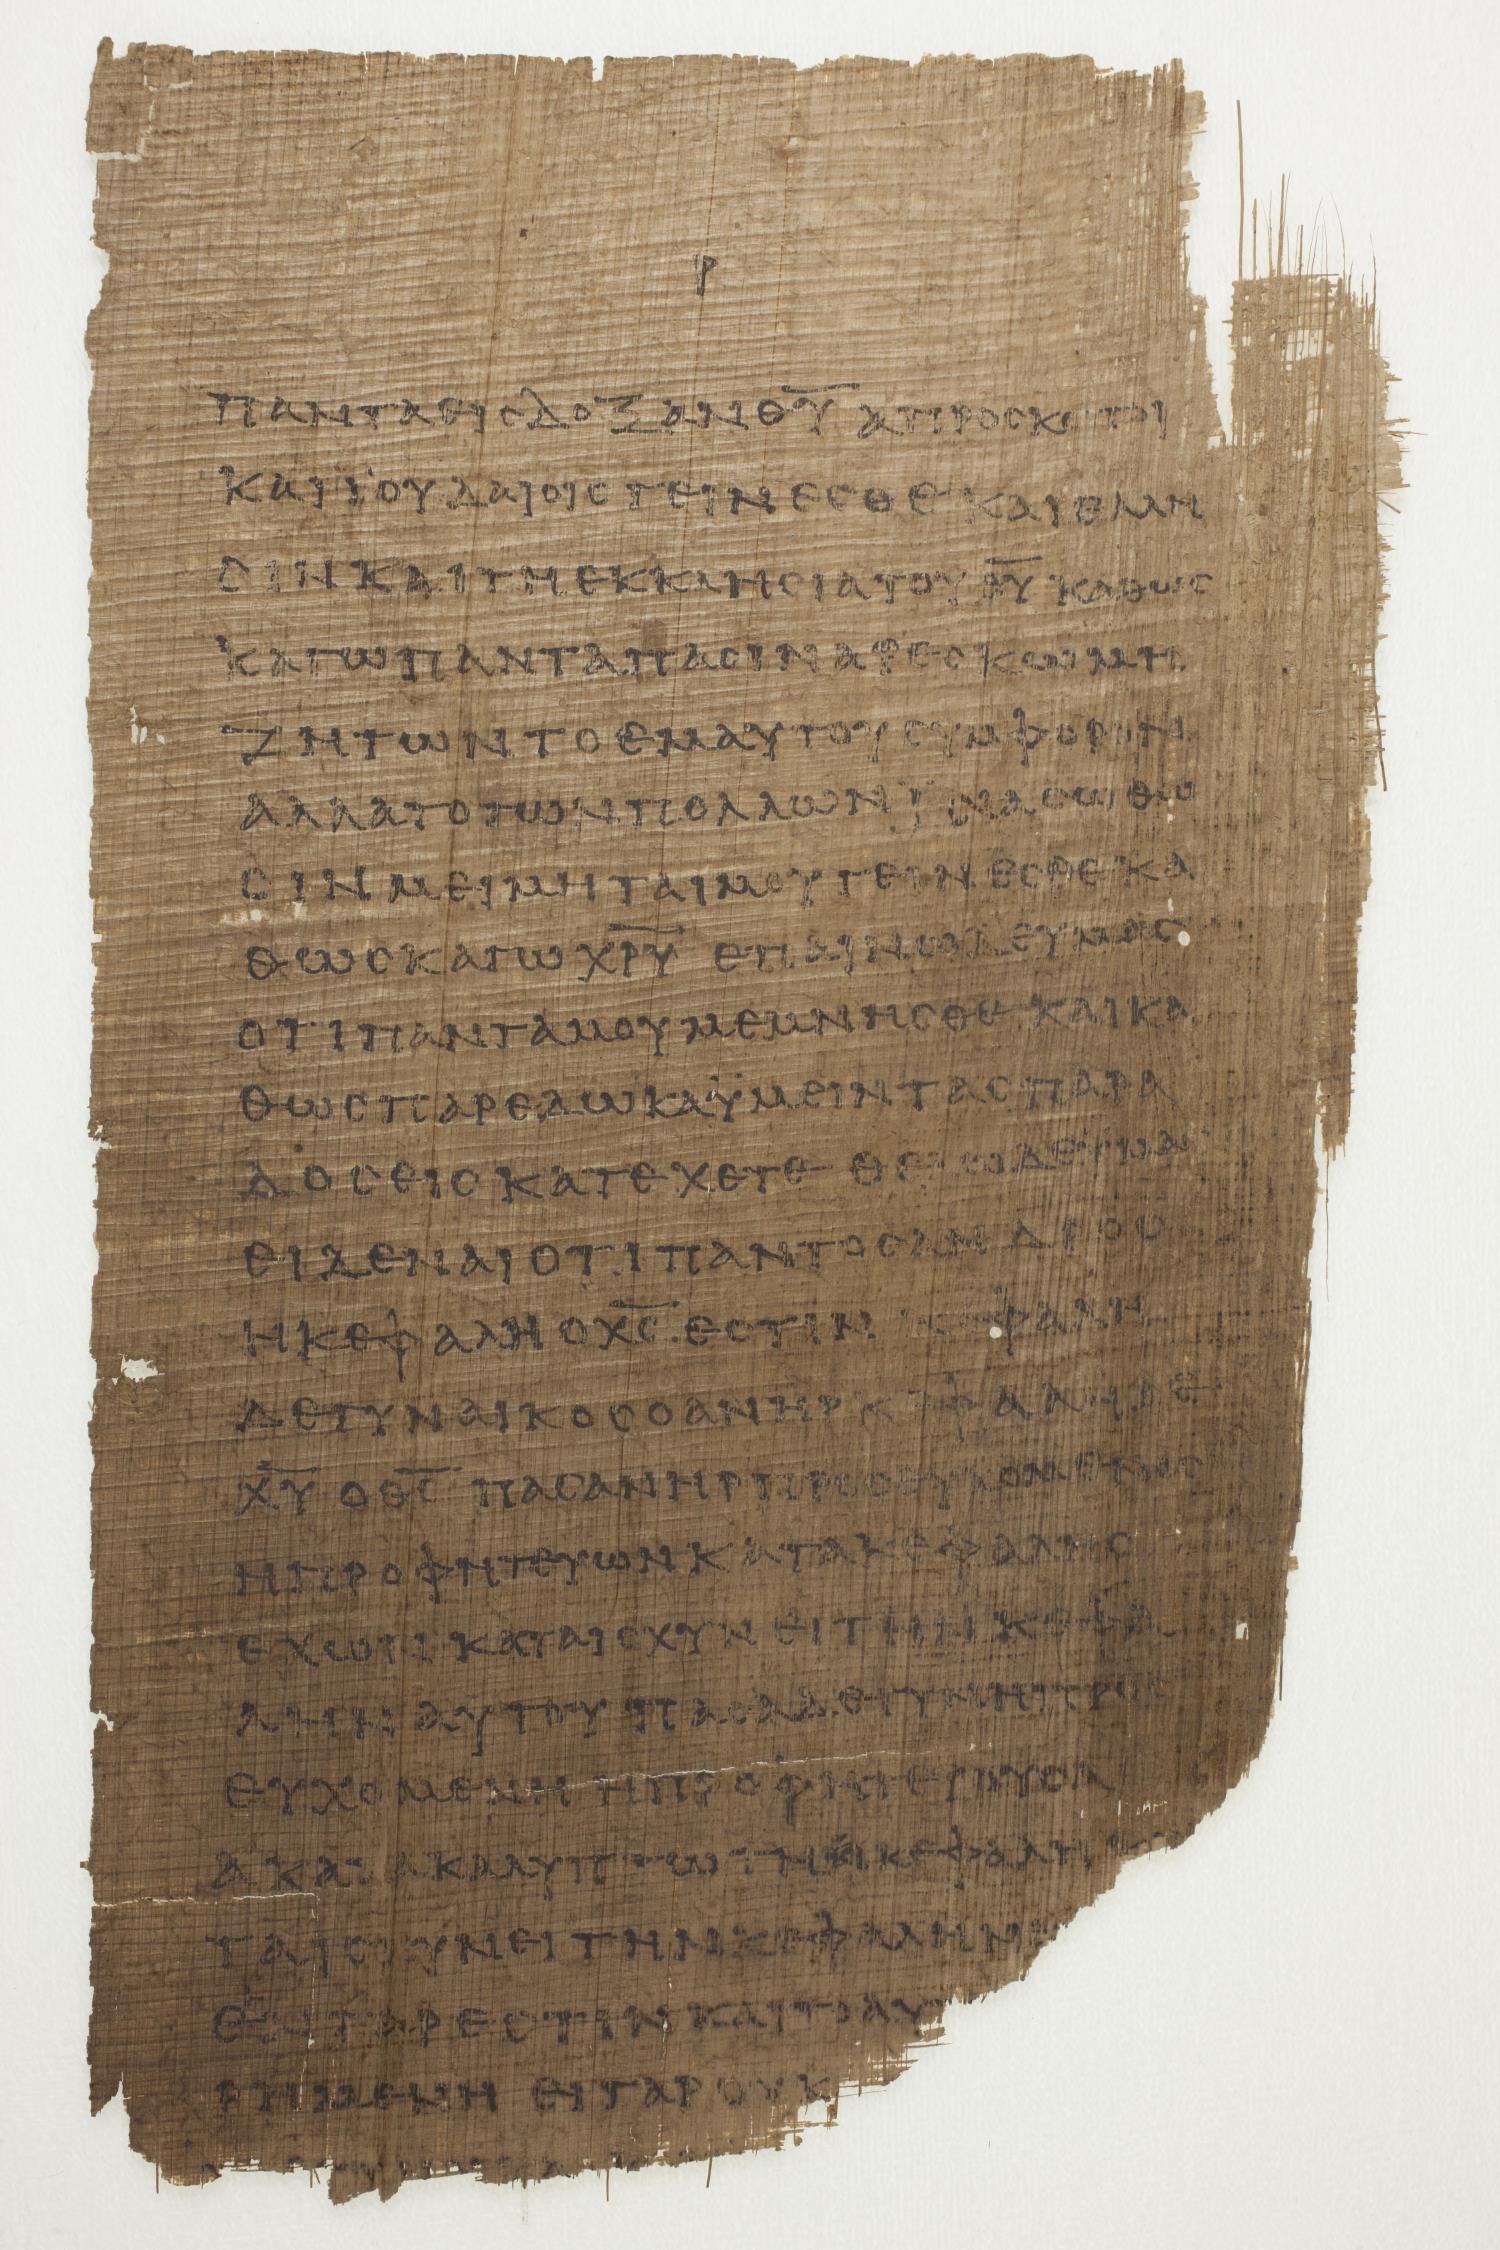 ρ
παντα εις δοξαν θ̅υ̅ απροσκοποι
και ϊουδαιοις γεινεσθε και ελλη
σιν και τη εκκλησια του θ̅υ̅ καθως
καγω παντα πασιν αρεσκω μη
ζητων το εμαυτου συμφορον
αλλα το των πολλων ϊνα σωθω
σιν μειμηται μου γεινεσθε κα
θως καγω χ̅ρ̅υ̅ επαινω δε υμας
οτι παντα μου μεμνησθε και κα
θως παρεδωκα ϋμειν τας παρα
δοσεις κατεχετε θελω δε υμας
ειδεναι οτι παντος ανδρος
η κεφαλη ο χ̅ς̅ εστιν κεφαλη
δε γυναικος ο ανηρ κεφαλη δε
χ̅υ̅ ο θ̅ς̅ πας ανηρ προσευχομενος
η προφητευων κατα κεφαλης
εχων καταισχυνει την κεφα
λην αυτου πασα δε γυνη προς
ευχομενη η προφητευουσα
ακατακαλυπτω τη κεφαλη κα
ταισχυνει την κεφαλην
εν γαρ εστιν και το αυ
ρημενη ει γαρ ουκ